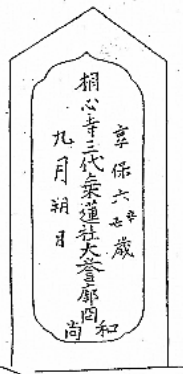 享保六辛丑歳
桐心寺三代乗蓮社大誉廓冏
和尚
九月朔日